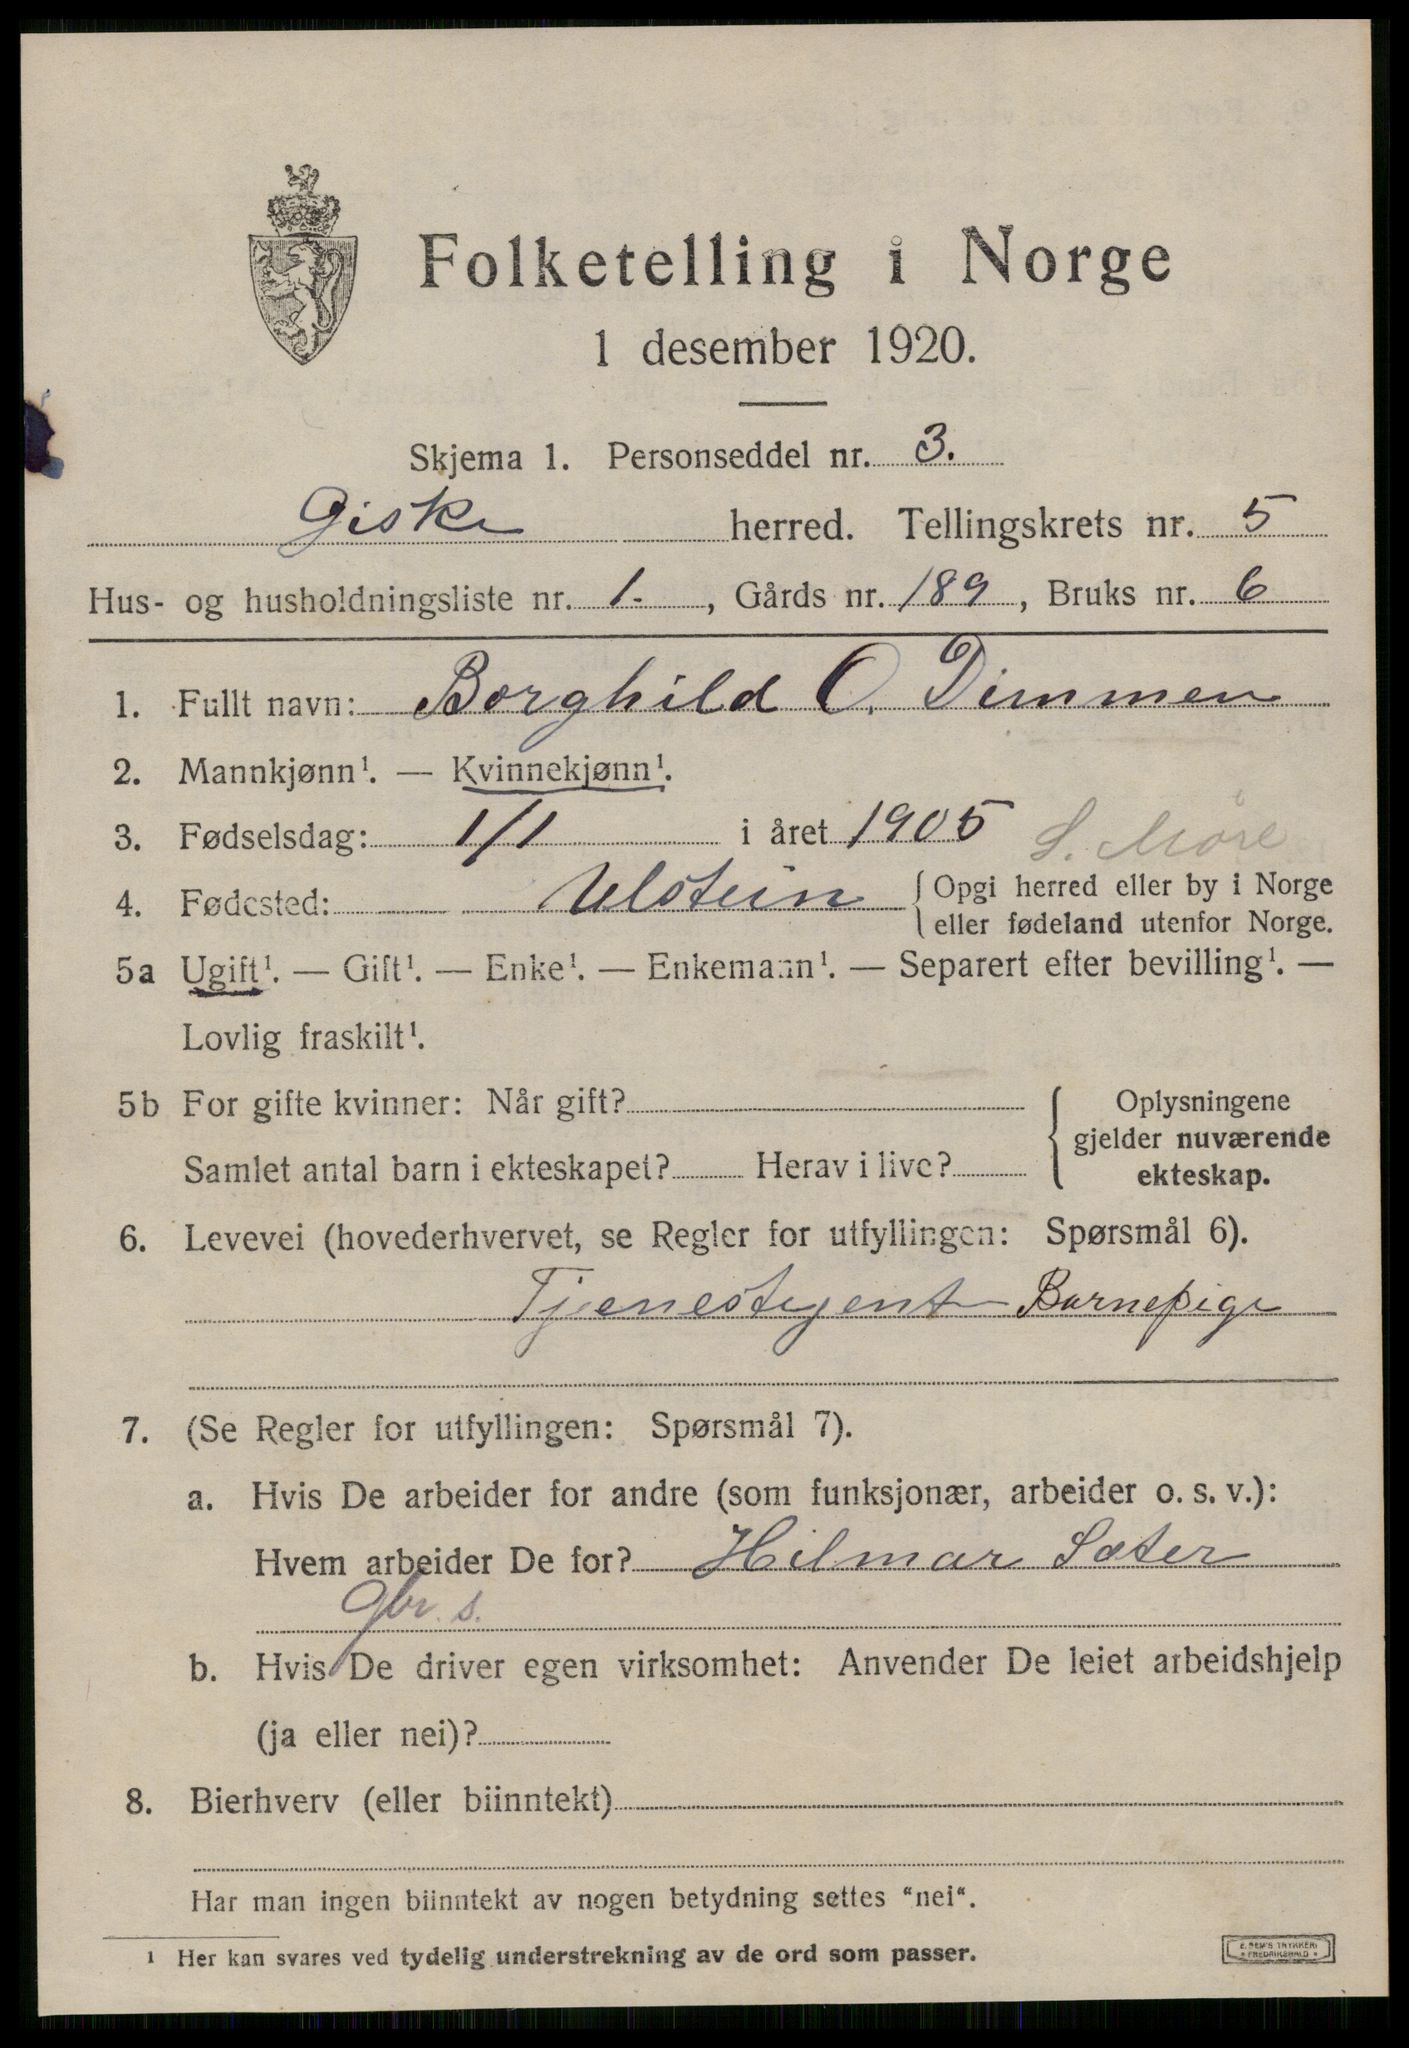 Folketelling i Norge
1 desember 1920.
Skjema 1. Personseddel nr. 3.
Giske herred. Tellingskrets nr. 5
Hus- og husholdningsliste nr. 1. , Gårds nr. 189 , Bruks nr. 6
1. Fullt navn: Borghild O. Dimmen
2. Mannkjønn¹. — Kvinnekjønn¹.
3. Fødselsdag: 1/1 i året 1905 S. Møre
4. Fødested: Ulstein { Opgi herred eller by i Norge
eller fødeland utenfor Norge.
5a Ugift¹. — Gift¹. — Enke¹. — Enkemann¹. — Separert efter bevilling¹. —
Lovlig fraskilt¹.
5b For gifte kvinner: Når gift?
Samlet antal barn i ekteskapet? Herav i live?
Oplysningene
gjelder nuværende
ekteskap.
6. Levevei (hovederhvervet, se Regler for utfyllingen: Spørsmål 6).
Tjenestegent Barnepige
7. (Se Regler for utfyllingen: Spørsmål 7).
a. Hvis De arbeider for andre (som funksjonær, arbeider o. s. v.):
Hvem arbeider De for? Hilmar Sæter
Gbr. s.
b. Hvis De driver egen virksomhet: Anvender De leiet arbeidshjelp
(ja eller nei)?
8. Bierhverv (eller biinntekt)
Har man ingen biinntekt av nogen betydning settes "nei".
¹ Her kan svares ved tydelig understrekning av de ord som passer.
E. SEM'S TRYKKERI
FREDRIKSHALD